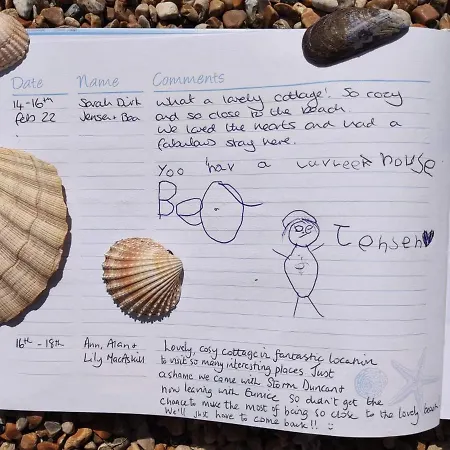 Date Name Comments
14-16th Sarah Dirk What a lovely cottage! So cosy
feb 22 Jensen + Bea and so close to the beach.
We loved the hearts and had a
fabulous stay here.
Yoo hav a house
Bea
Jensen
16th - 18th Ann, Alan + Lovely, cosy cottage in fantastic location
Lily MacAskill to visit so many interesting places. Just
a shame we came with Storm Duncan +
now leaving with Eunice so didn't get the
chance to make the most of being so close to the lovely beach
We'll just have to come back!!